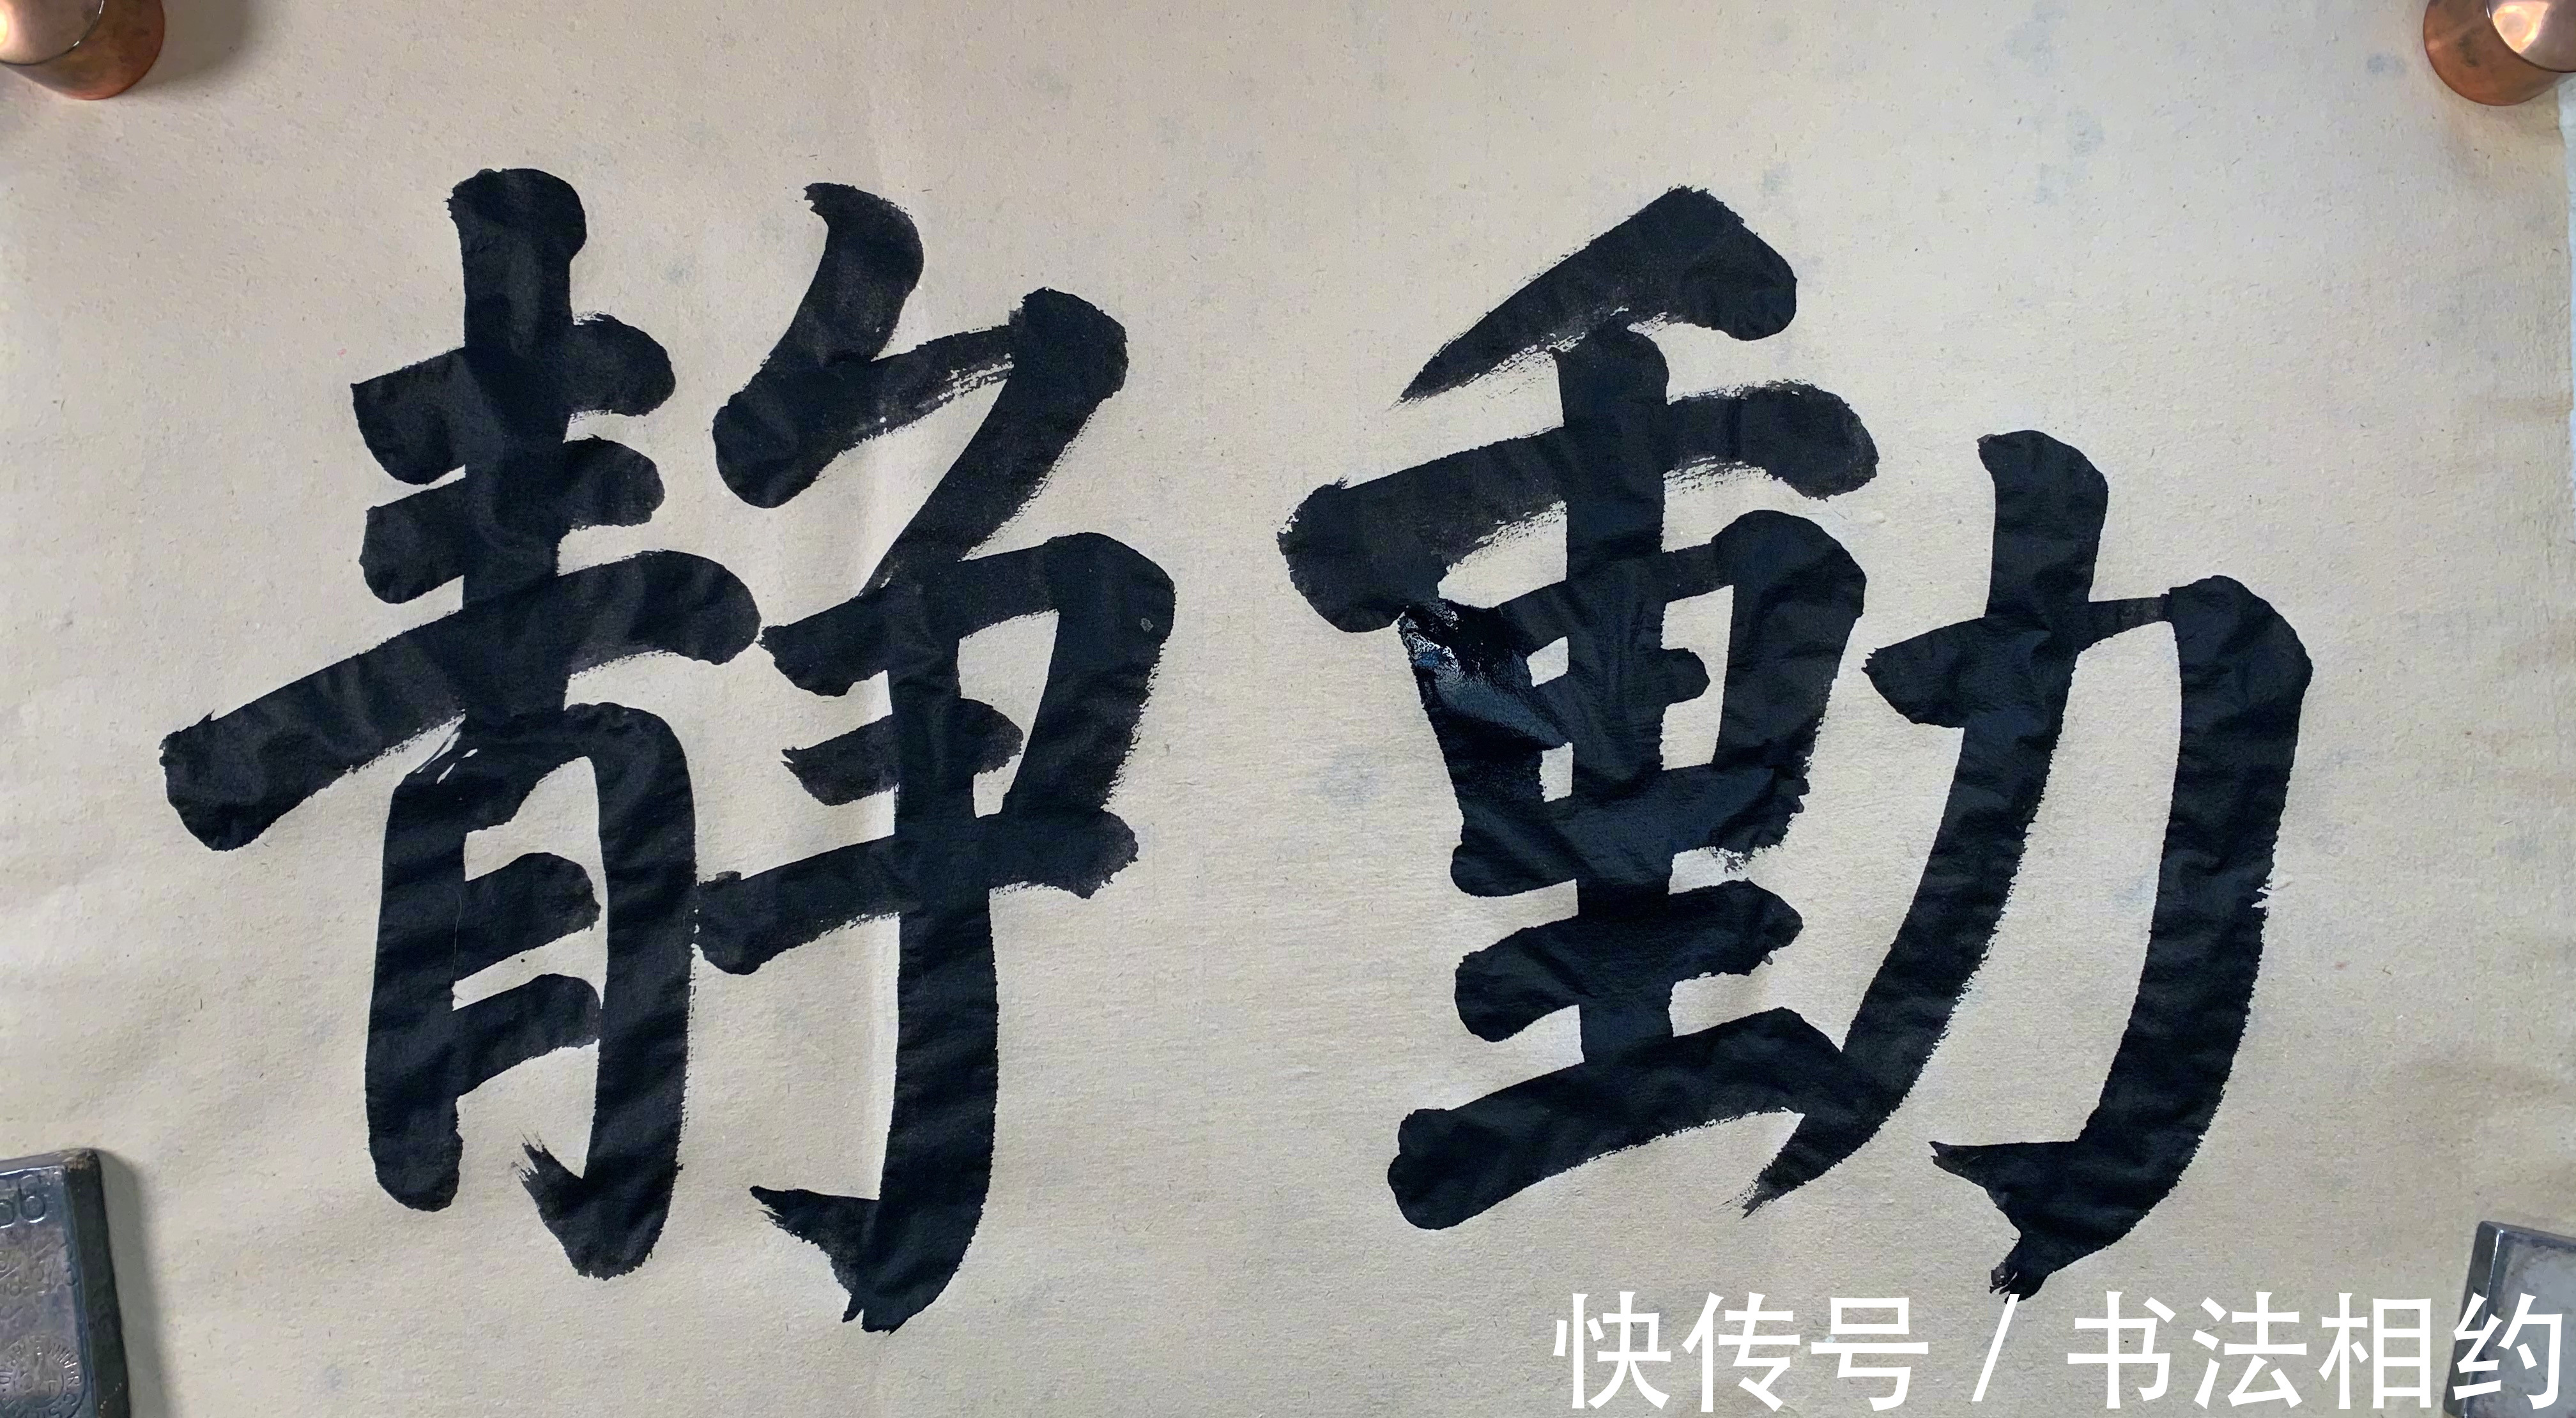 動静
快传号 / 书法相约